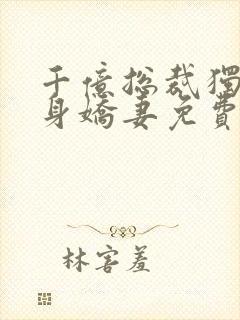 千億總裁獨
身嬌妻免費
林害羞